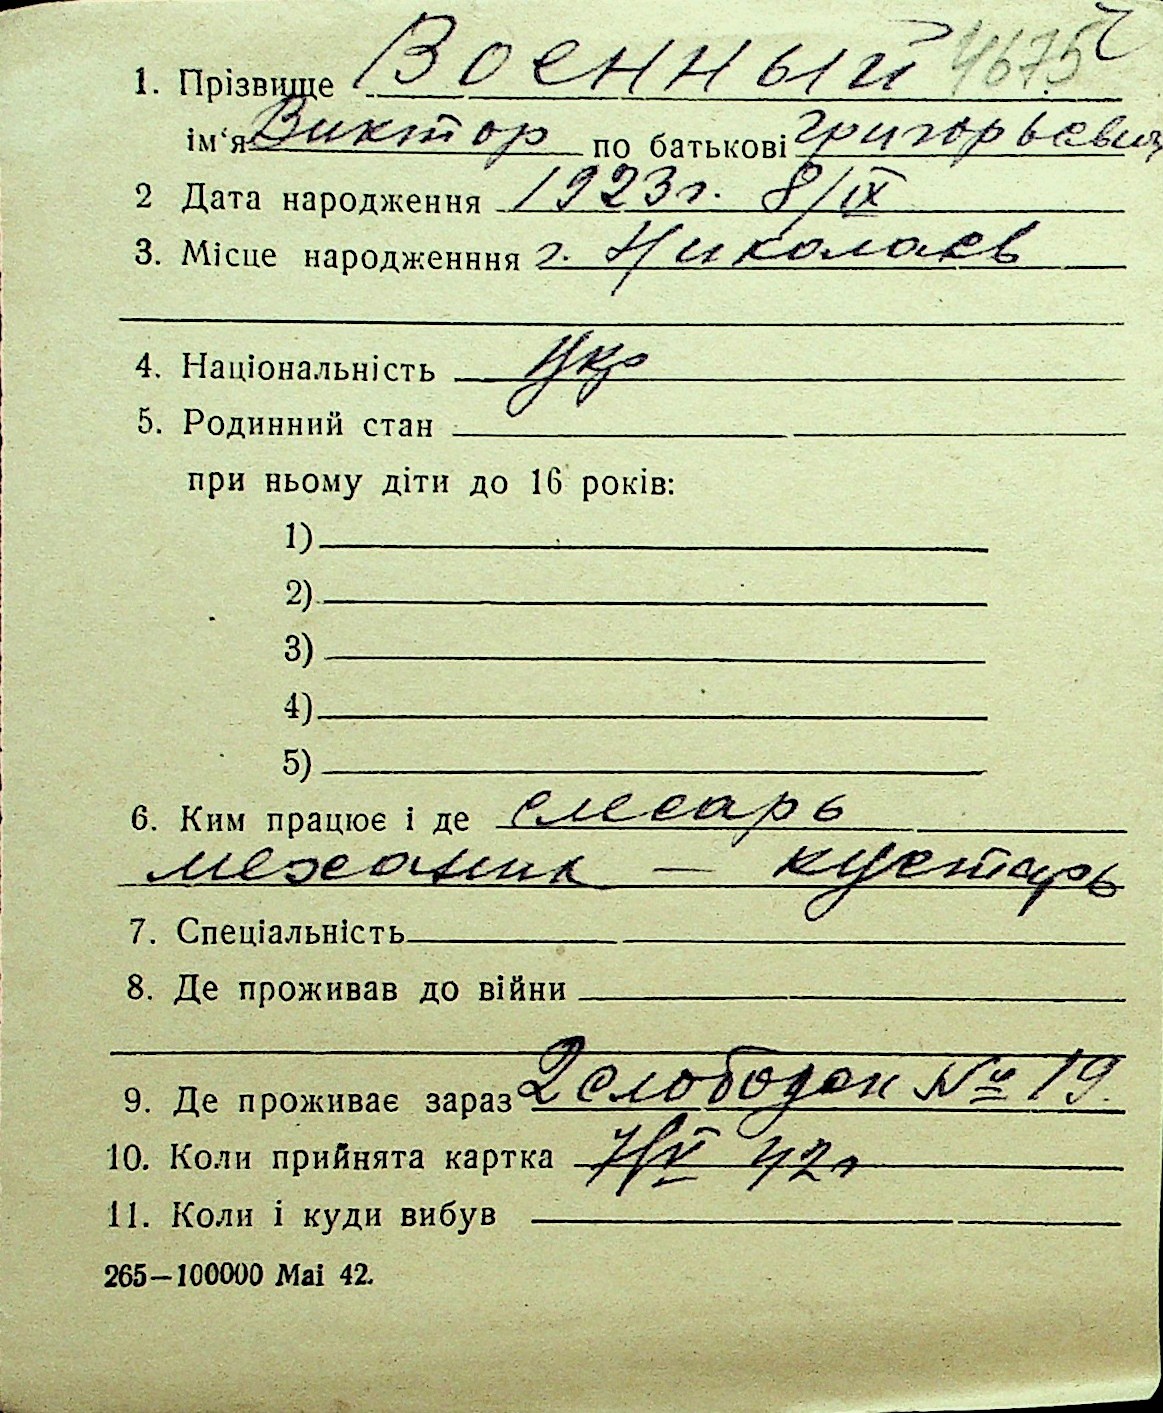 1. Прізвище Военный 4675
ім‘я Виктор по батькові Григорьевич
2 Дата народження 1923 г. 8/IX
3. Місце народженння г. Николаев
4. Національність укр
5. Родинний стан
при ньому діти до 16 років:
1)
2)
3)
4)
5)
6. Ким працює і де слесарь
механик — кустарь
7. Спеціальність
8. Де проживав до війни
9. Де проживає зараз 2 слободск № 19.
10. Коли прийнята картка 7/V 42 г
11. Коли і куди вибув
265—100000 Mai 42.